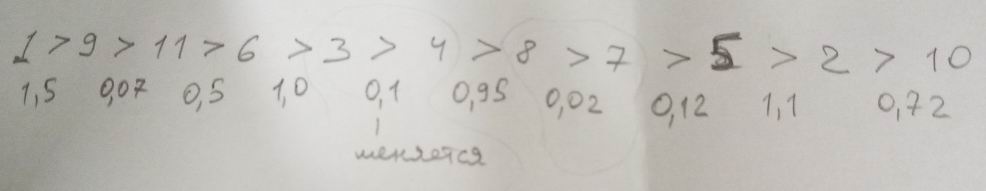 1 > 9 > 11 > 6 > 3 > 4 > 8 > 7 > 5 > 2 > 10
1,5 0,07 0,5 1,0 0,1 0,95 0,02 0,12 1,1 0,72
меняется